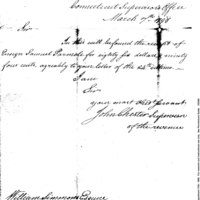 Connecticut Supervisors Office
March 7th 1798
Sir
In this will be found the receipt of
Ensign Samuel for eighty six dollars & ninety
four cents, agreeably to your letter of the
I am
Sir
your most obdt servant
John Chester Supervisor
of the revenue
William Simmons Esquire